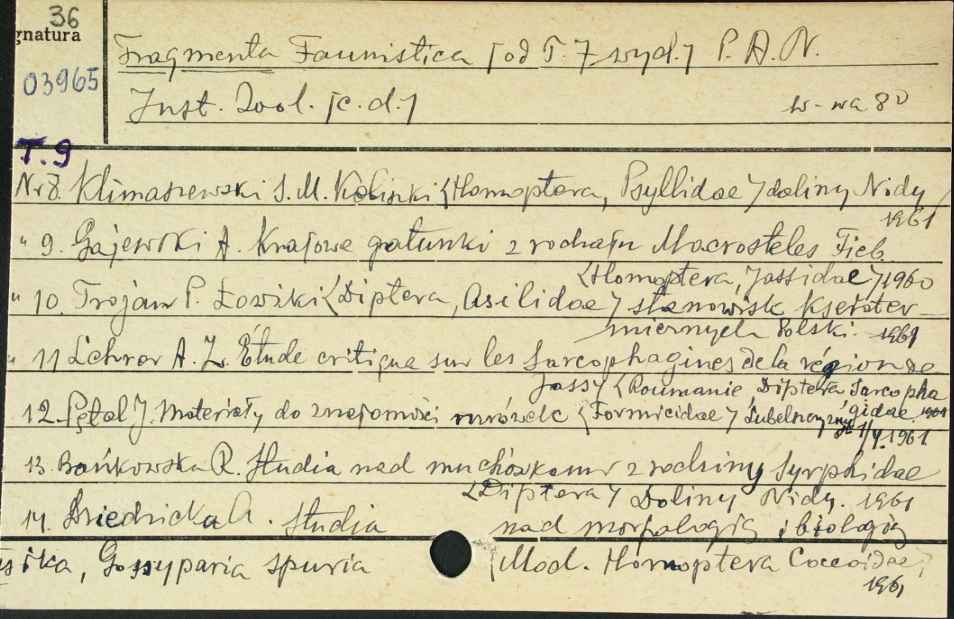 36
gnatura
03965
Fragmenta Faunistica [od T. 7 wyd.] P. A. N.
Inst. Zool. [c. d.]
W-wa 80
T. 9
Nr 8. Klimaszewski S. M. Koliszki (Homoptera, Psyllidae) doliny Nidy
1961
" 9. Gajewski A. Krajowe gatunki z rodzaju Macrosteles Fieb.
(Homoptera, Jassidae) 1960
" 10. Trojan P. Łowiki (Diptera, Asilidae) stanowisk kseroter-
micznych Polski. 1961
" 11 Lehrer A. Z. Étude critique sur les Sarcophagines de la région de
Jassy (Roumanie, Diptera Sarcopha
gidae 1961
12. Pętal J. Materiały do znajomości mrówek (Formicidae) Lubelszczyzny
1961
13. Bańkowska R. Studia nad muchówkami z rodziny Syrphidae
(Diptera) Doliny Nidy. 1961
14. Dziedzicka A. Studia nad morfologią i biologią
ika, Gossyparia spuria (Mod. Homoptera Coccoidae)
1961